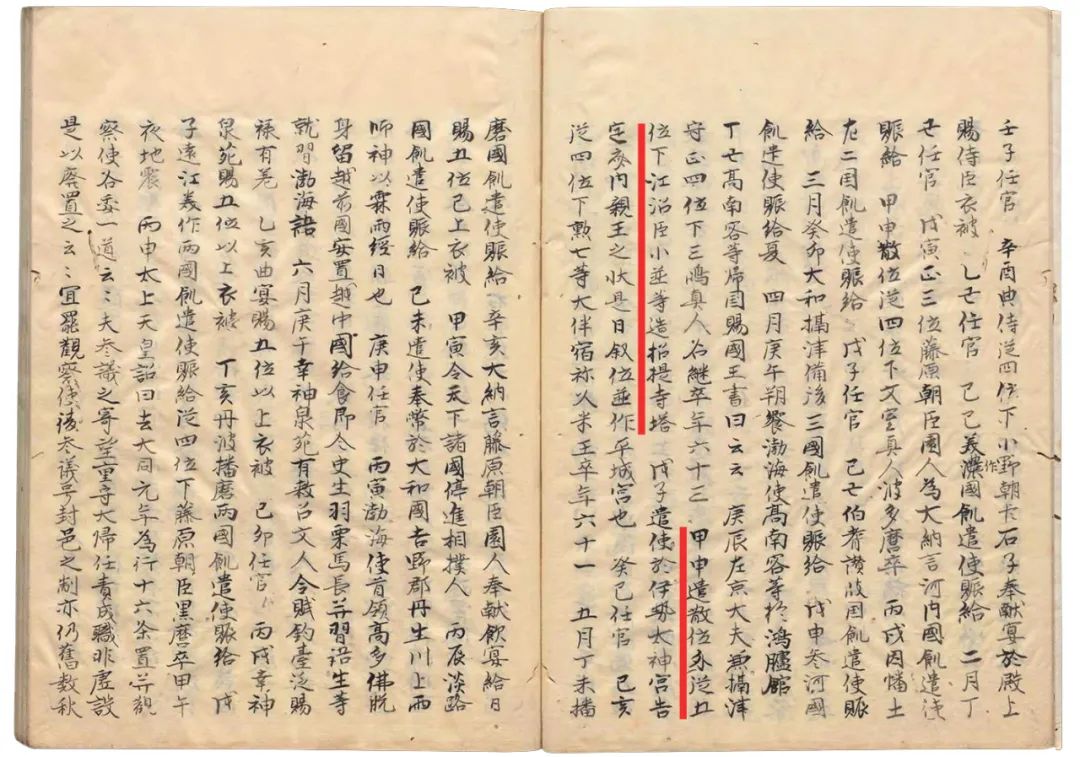 壬子任官　辛酉典侍従四位下小野朝臣石子奉献宴於殿上
賜侍臣衣被　乙丑任官　己巳美濃國飢遣使賑給　二月丁
丑任官　戊寅正三位藤原朝臣園人為大納言河内國飢遣使
賑給　甲申散位従四位下文室真人波多麿卒　丙戌因幡土
左二国飢遣使賑給　戊子任官　己丑伯耆讃岐国飢遣使賑
給　三月癸卯大和攝津備後三國飢遣使賑給　戊申参河國
飢遣使賑給夏　四月庚午朔饗渤海使高南容等於鴻臚館
丁丑高南容等帰国賜國王書曰云云　庚辰左京大夫兼攝津
守正四位下三嶋真人名継卒年六十三　甲申遣散位外従五
位下江沼臣小並等造招提寺塔　戊子遣使於伊勢太神宮告
定斎内親王之状是日叙位並作平城宮也　癸巳任官　己亥
従四位下勲七等大伴宿祢久米主卒年六十一　五月丁未播
磨國飢遣使賑給　辛亥大納言藤原朝臣園人奉献飲宴給日
賜五位已上衣被　甲寅令天下諸國停進相撲人　丙辰淡路
國飢遣使賑給　己未遣使奉幣於大和國吉野郡丹生川上雨
師神以霖雨経日也　庚申任官　丙寅渤海使首領高多佛脱
身留越前國安置越中國給食即令史生羽栗馬長并習語生等
就習渤海語　六月庚午幸神泉苑有勅召文人令賦釣臺泛賜
禄有差　乙亥曲宴賜五位以上衣被　己卯任官　丙戌幸神
泉苑賜五位以上衣被　丁亥丹波播磨両國飢遣使賑給　戊
子遠江美作両國飢遣使賑給従四位下藤原朝臣黒麿卒甲午
夜地震　丙申太上天皇詔曰去大同元年為行十六条置并観
察使各委一道云云夫参議之寄望重守大帰任責成職非虚設
是以廃置之云云宜罷観察使復参議号封邑之制亦仍舊数秋